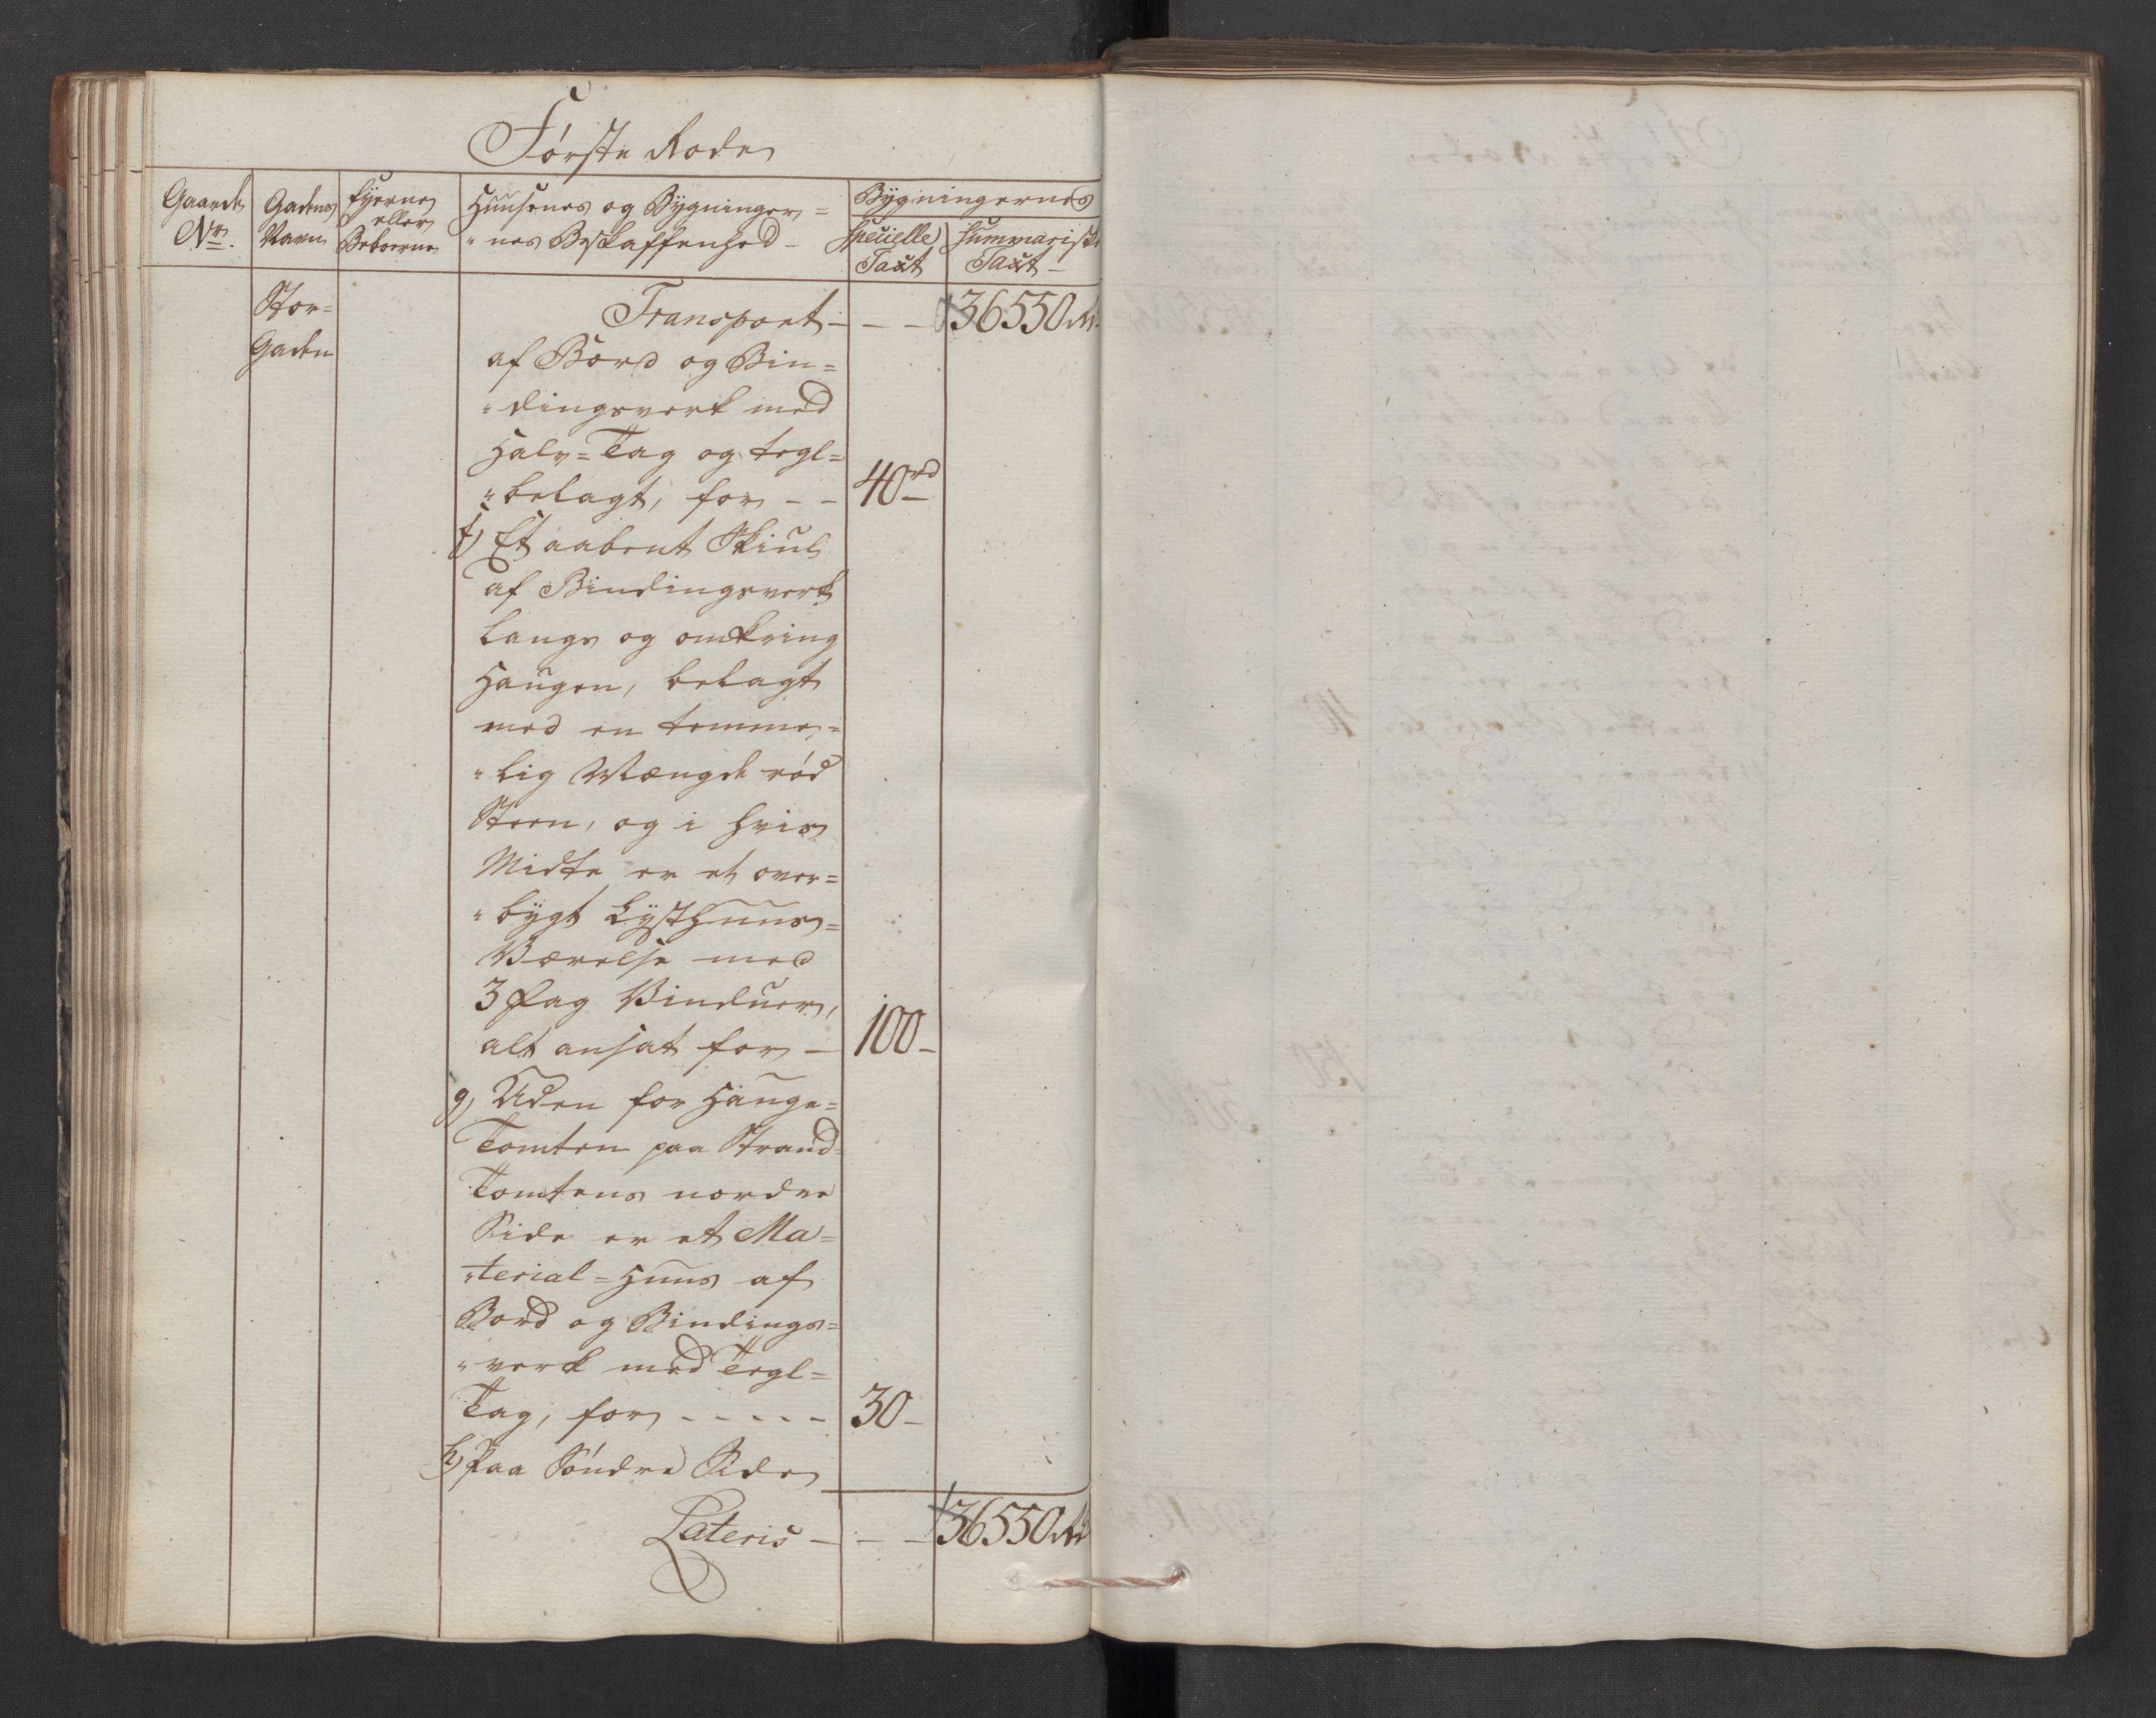 Første Rode
Gaardens Gadens Eyerne Huusenes og Bygninger= Bygningernes
eller
No. Navn Beboerne "nes Beskaffenhed - Specielle Summariske
Taxt Taxt -
Stor= Transport - - - 36550 rd.
Gaden af Bord og Bin=
"dingsverk med
Halv=Tag og tegl=
"belagt, for - - 40 rd -
f) Et aabent Skiul
af Bindingsverk
langs og omkring
Haugen, belagt
med en temme=
"lig Mængde rød
Steen, og i hvis
Midte er et over=
"bygt Lysthuus=
Værelse med
3 Fag Vinduer,
alt ansat for - 100 -
g) Uden for Hauge=
Tomten paa Strand
Tomtens nordre
Side er et Ma=
"terial=Huus af
Bord og Bindings=
"verk med Tegl=
Tag, for - - - - - 30 -
h) Paa Søndre Side
Lateris - - - 36550 rd